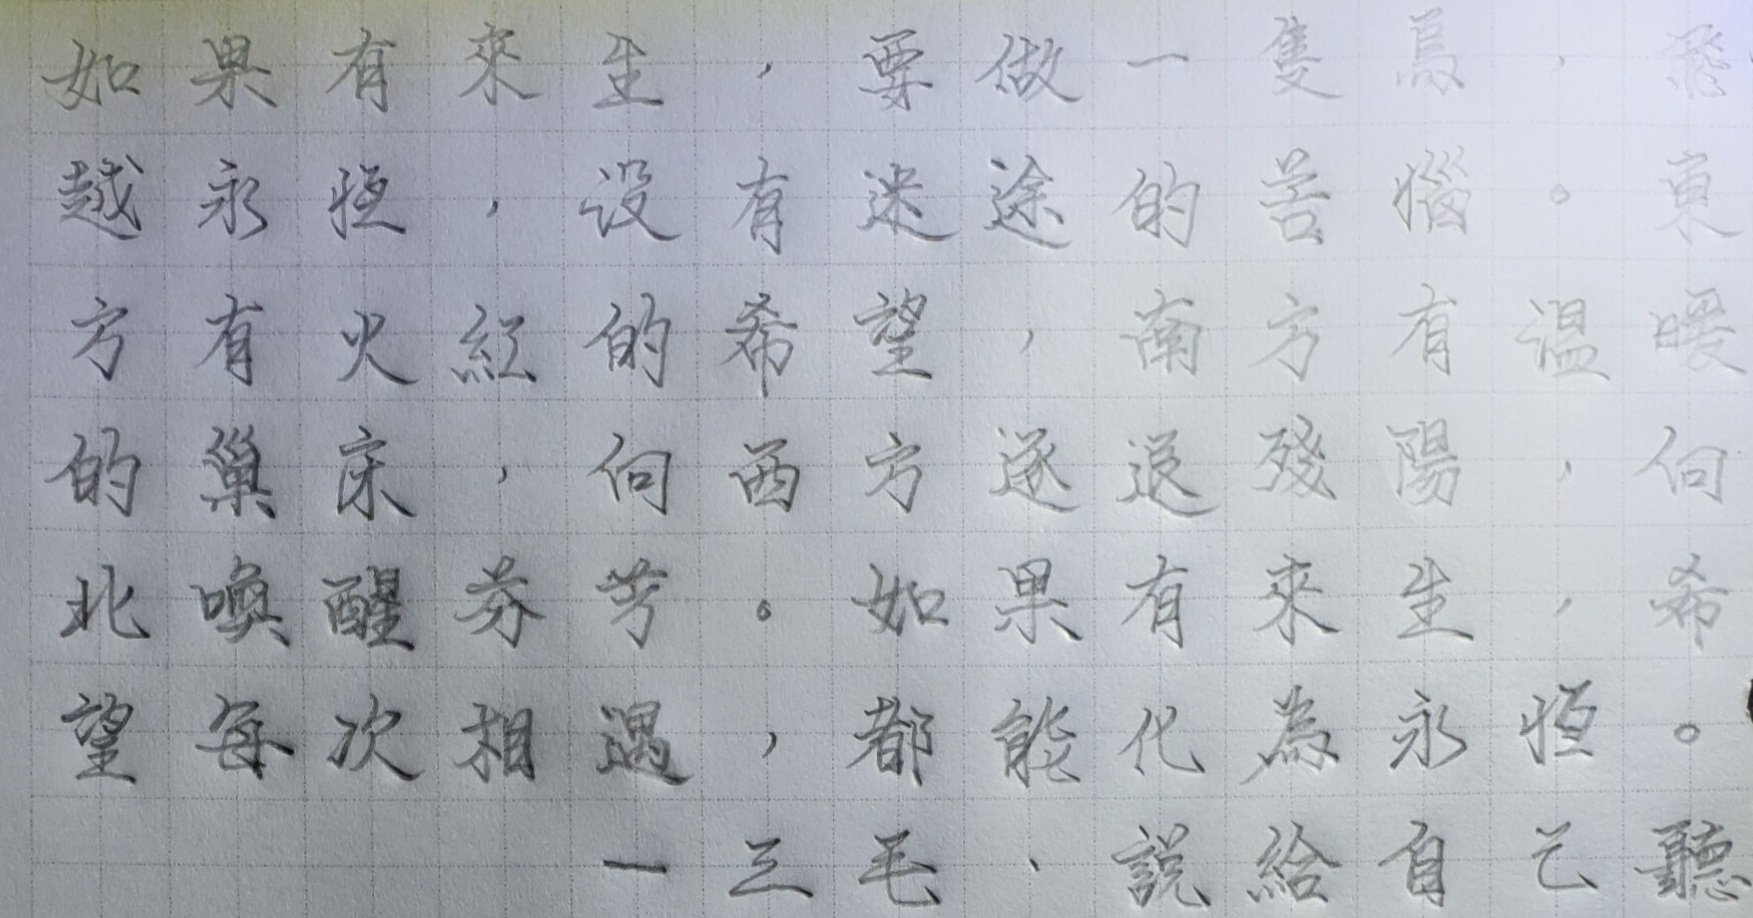 如果有來生，要做一隻鳥，飛
越永恆，没有迷途的苦惱。東
方有火紅的希望，南方有溫暖
的巢床，向西方逐退殘陽，向
北喚醒芬芳。如果有來生，希
望每次相遇，都能化為永恆。
一三毛、說給自己聽